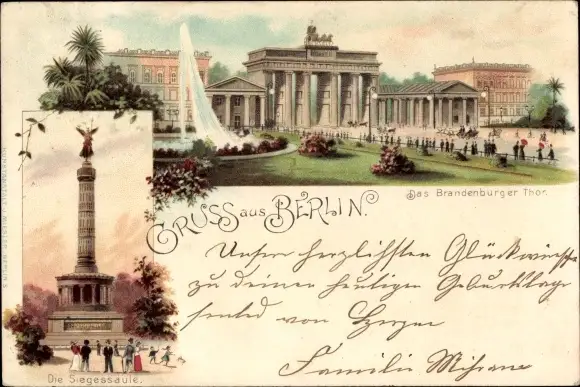 Das Brandenburger Thor.
GRUSS aus BERLIN.
Unsere herzlichsten Glückwünsche
zu deinem heutigen Geburtstage
sendet von Herzen
Familie
Die Siegessäule.